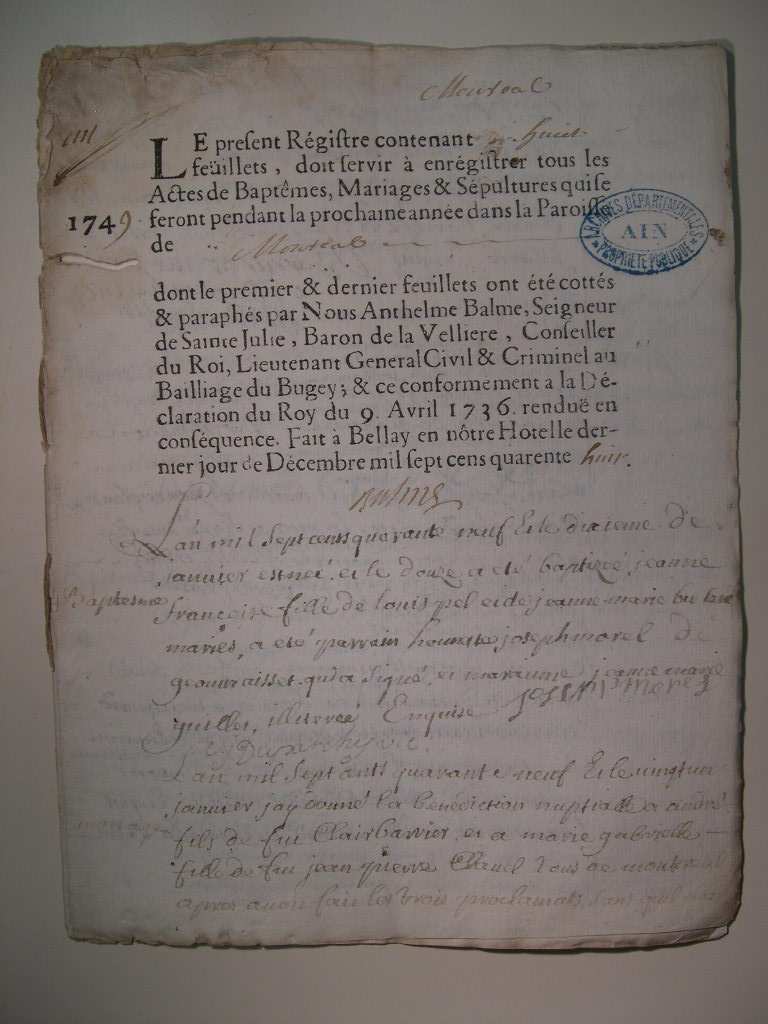 Montreal
LE present Régistre contenant huict
feüillets, doit servir à enrégistrer tous les
Actes de Baptêmes, Mariages & Sépultures qui se
1749 feront pendant la prochaine année dans la Paroisse
de Montreal
ARCHIVES DÉPARTEMENTALES
AIN
PROPRIÉTÉ PUBLIQUE
dont le premier & dernier feuillets ont été cottés
& paraphés par Nous Anthelme Balme, Seigneur
de Sainte Julie, Baron de la Velliere, Conseiller
du Roi, Lieutenant General Civil & Criminel au
Bailliage du Bugey; & ce conformement a la Dé-
claration du Roy du 9. Avril 1736. renduë en
conséquence. Fait à Bellay en nôtre Hotel le der-
nier jour de Décembre mil sept cens quarente huit.
Balme
L'an mil sept cents quarante neuf et le dixieme de
janvier est neé, et le douze a eté baptizeé jeanne
Baptesme
françoise fille de louis pel et de jeanne marie
mariés, a eté parrain honneste joseph morel de
qui a signé, et maraine jeanne marie
illitereé Enquise Joseph morel
L'an mil sept cents quarante neuf et le vingt un
janvier jay donné la bénédiction nuptialle a andré
fils de feu Clair barrier, et a marie gabrielle
fille de feu jean pierre tous de montreal
apres avoir fait les trois proclamats, sans quil